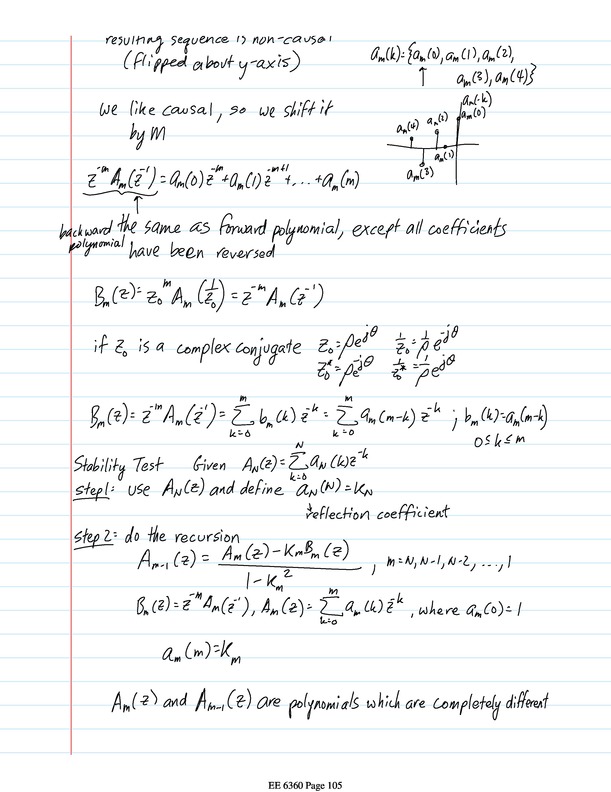 resulting sequence is non-causal
(flipped about y-axis)
a_m(k)={a_m(0), a_m(1), a_m(2),
↑ a_m(3), a_m(4)}
we like causal, so we shift it
by M
a_m(-k)
a_m(0)
a_m(4) a_m(2)
a_m(1)
a_m(3)
z^-m A_m(z^-1)=a_m(0)z^-m+a_m(1)z^-m+1+...+a_m(m)
backward the same as forward polynomial, except all coefficients
polynomial have been reversed
B_m(z)=z_0^m A_m(1/z_0)=z^-m A_m(z^-1)
if z_0 is a complex conjugate z_0=ρe^jθ 1/z_0=1/ρ e^-jθ
z_0^*=ρe^-jθ 1/z_0^*=1/ρ e^jθ
B_m(z)=z^-m A_m(z^-1)=∑_{k=0}^{m} b_m(k) z^-k=∑_{k=0}^{m} a_m(m-k) z^-k ; b_m(k)=a_m(m-k)
0≤k≤m
Stability Test Given A_N(z)=∑_{k=0}^{N} a_N(k)z^-k
step1: use A_N(z) and define a_N(N)=K_N
↓reflection coefficient
step 2: do the recursion
A_m-1(z) = (A_m(z)-K_m B_m(z))/(1-K_m^2) , m=N, N-1, N-2, ..., 1
B_m(z)=z^-m A_m(z^-1), A_m(z)=∑_{k=0}^{m} a_m(k) z^-k, where a_m(0)=1
a_m(m)=K_m
A_m(z) and A_m-1(z) are polynomials which are completely different
EE 6360 Page 105